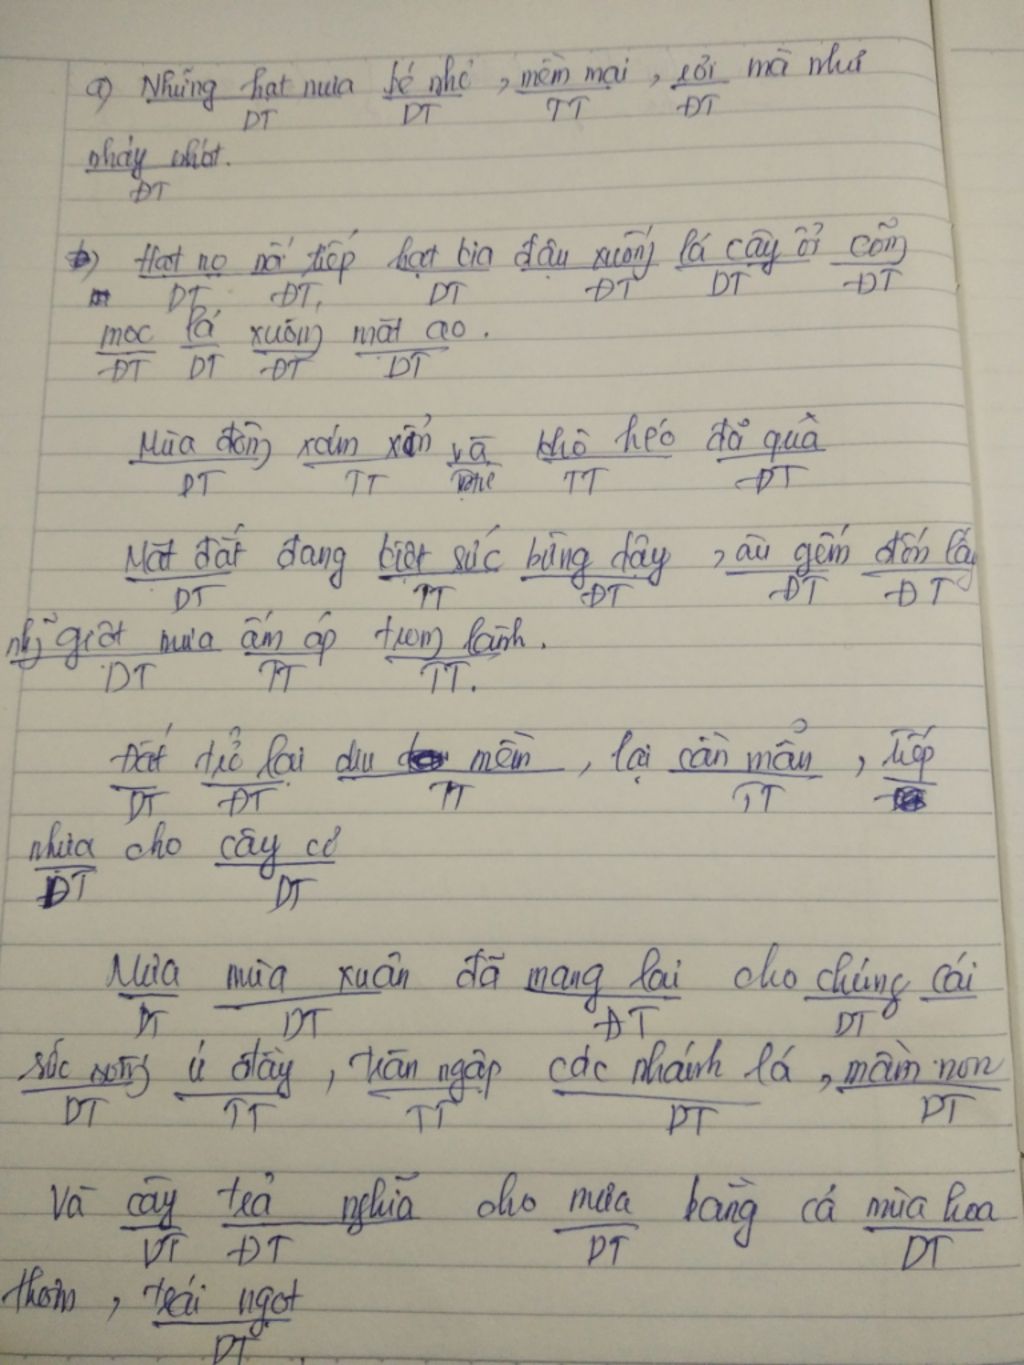 a) Những hạt mưa bé nhỏ, mềm mại, rơi mà như
DT DT TT ĐT
nhảy nhót.
ĐT
b) Hạt nọ nối tiếp hạt kia đậu xuống lá cây ổi cong
DT ĐT DT ĐT DT ĐT
mọc lá xuống mặt ao.
ĐT DT ĐT DT
Mùa đông xám xỉn và khô héo đã qua
DT TT TT ĐT
Mặt đất đang kiệt sức bừng dậy, âu yếm đón lấy
DT TT ĐT ĐT ĐT
giọt mưa ấm áp trong lành.
DT TT TT.
Đất trở lại dịu mềm, lại cần mẫn, tiếp
DT ĐT TT TT
nhựa cho cây cỏ
ĐT DT
Mưa mùa xuân đã mang lại cho chúng cái
DT DT ĐT DT
sức sống ứ đầy, tràn ngập các nhánh lá, mầm non
DT TT TT DT DT
Và cây trả nghĩa cho mưa bằng cả mùa hoa
DT ĐT DT DT
thơm, trái ngọt
DT